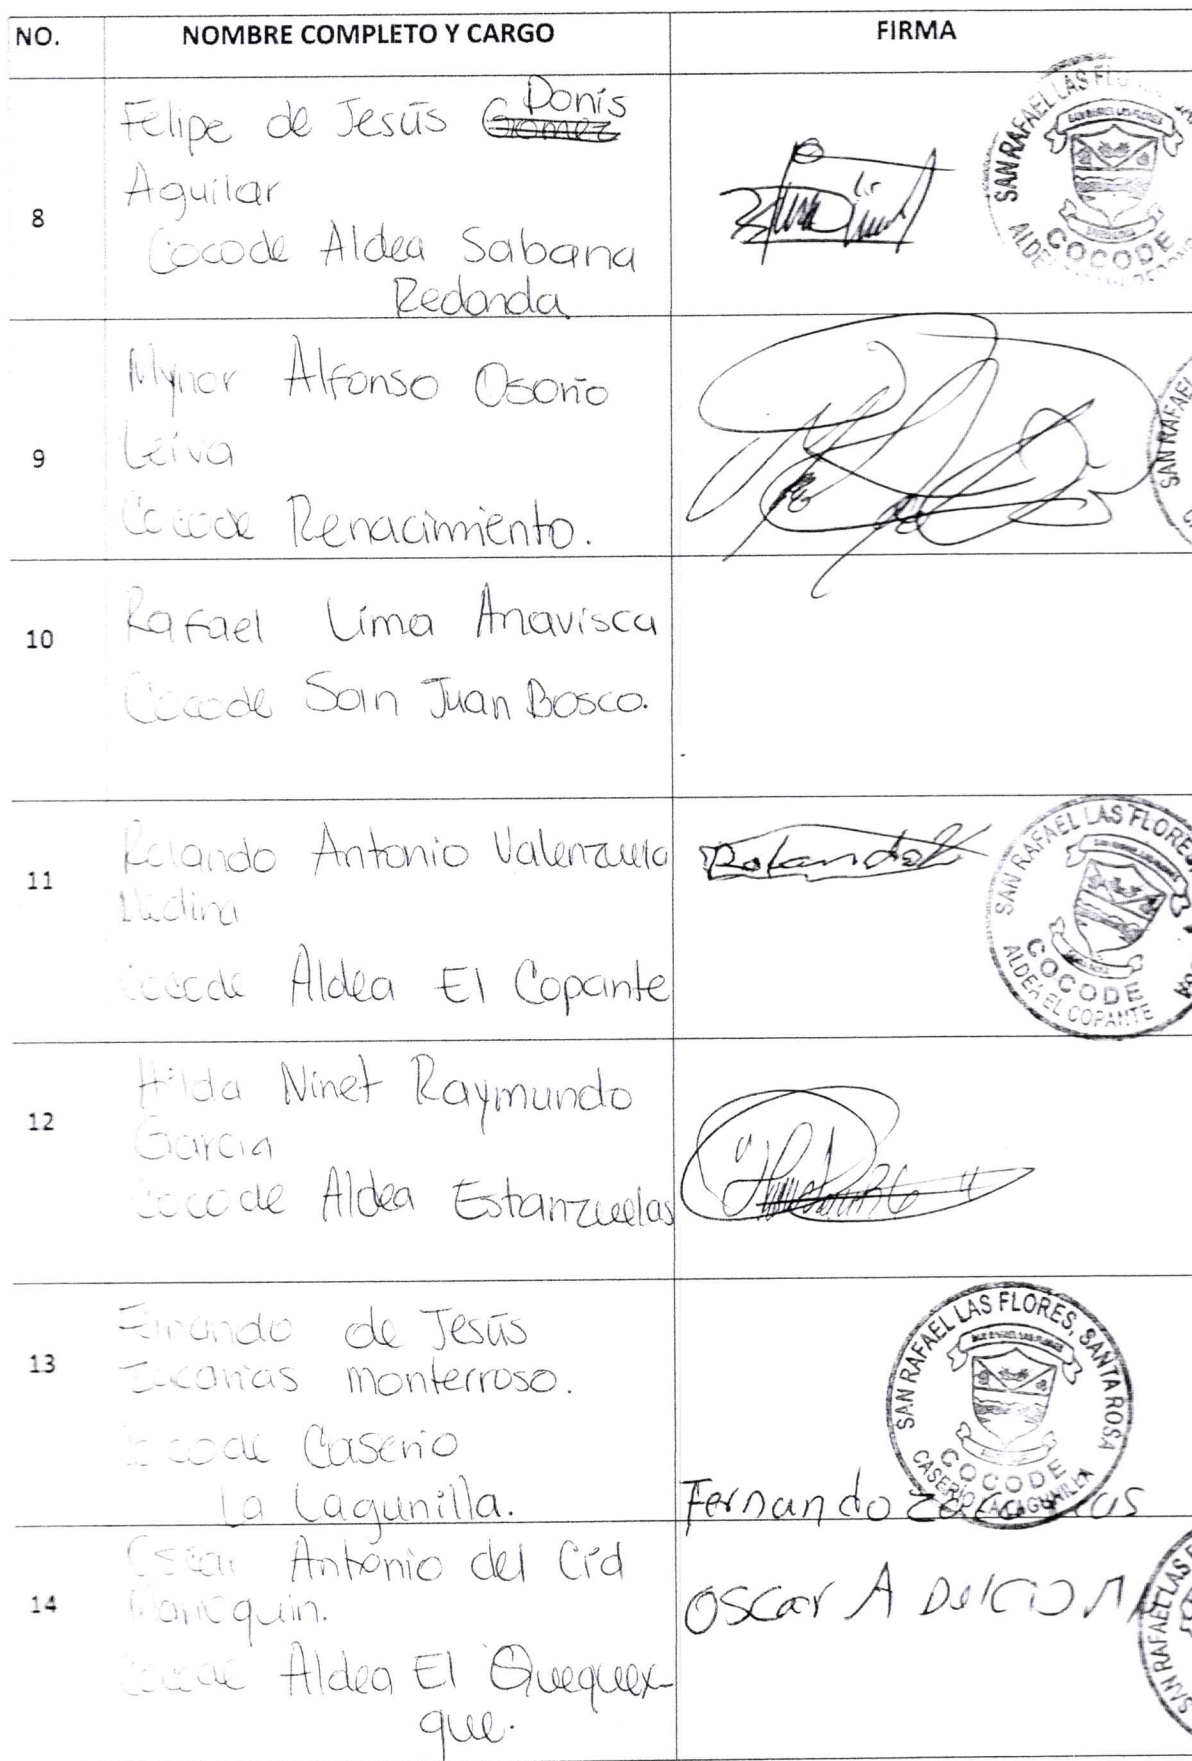 NO. NOMBRE COMPLETO Y CARGO FIRMA
8
Donis
Felipe de Jesús Gomez
Aguilar
Cocode Aldea Sabana
Redonda
SAN RAFAEL LAS FL
COCODE
9
Mynor Alfonso Osorio
Leiva
Cocode Renacimiento.
SAN RAFAEL
10
Rafael Lima Anavisca
Cocode San Juan Bosco.
11
Rolando Antonio Valenzuela
Medina
Cocode Aldea El Copante
Rolando V
SAN RAFAEL LAS FLORES,
COCODE
ALDEA EL COPANTE
12
Hilda Ninet Raymundo
Garcia
Cocode Aldea Estanzuelas
13
de Jesús
monterroso.
Cocode Caserio
La Lagunilla.
Fernando
SAN RAFAEL LAS FLORES, SANTA ROSA
COCODE
CASERIO LA LAGUNILLA
14
Oscar Antonio del Cid
Cocode Aldea El Quequex-
que.
Oscar A Del CiD
SAN RAFAEL LAS